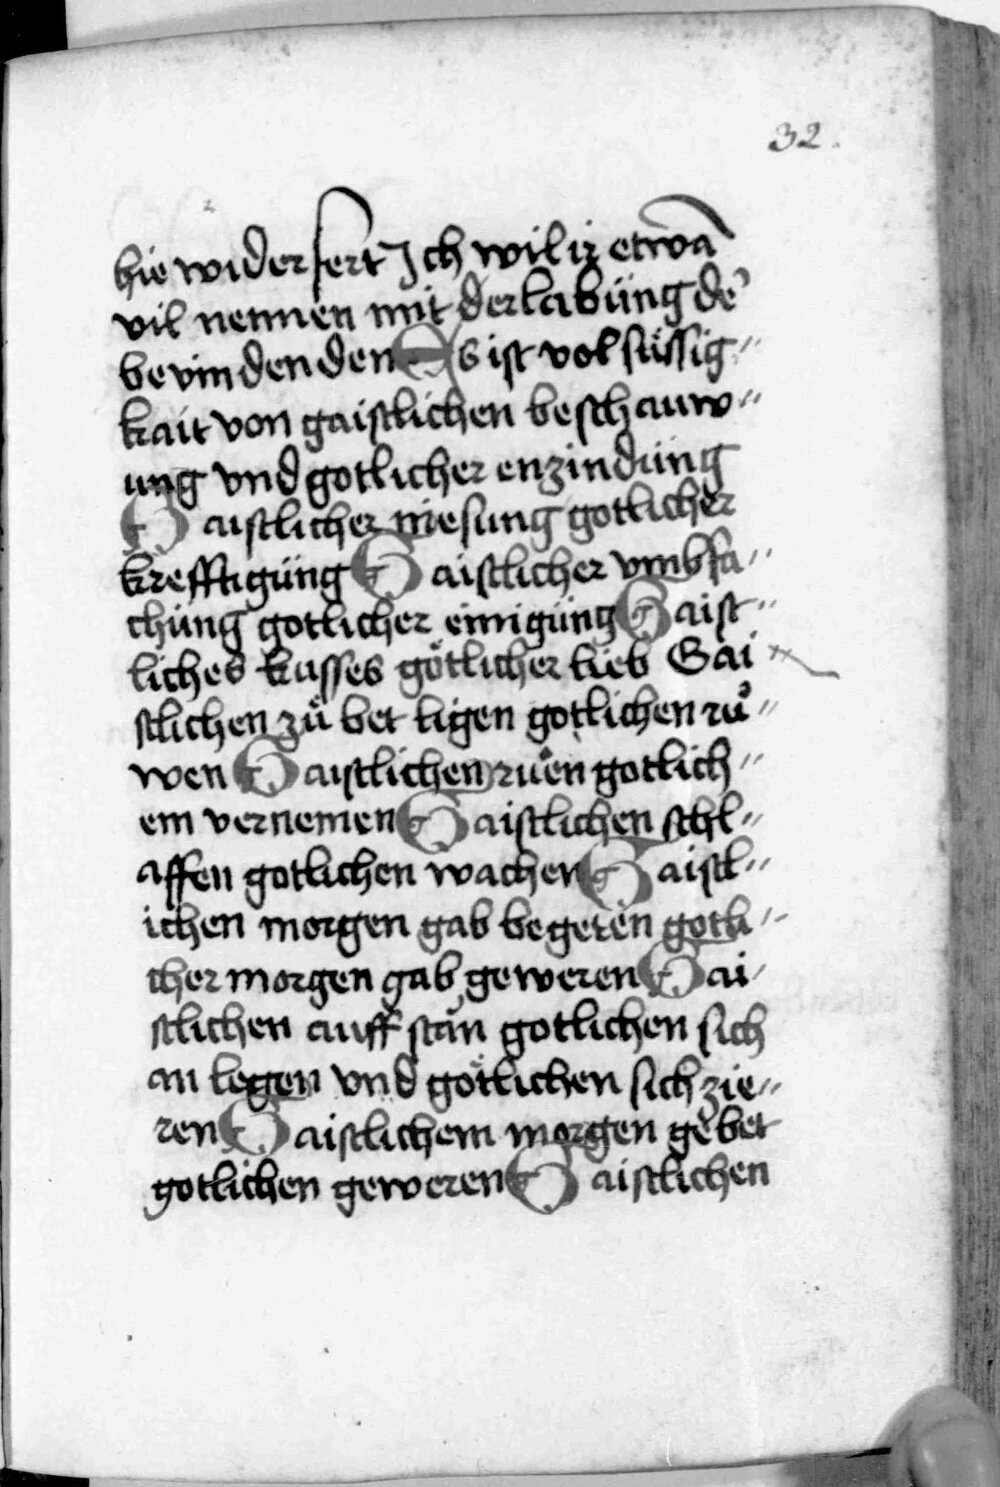 32.
hie widerfert Ich wil ir etwa
vil nennen mit der labüng de
bevindenden Es ist vol süssig〃
kait von gaistlichen beschauw〃
ung vnd gotlicher enzindüng
Gaistlicher niesung gotlicher
krefftigüng Gaistlicher vmbfa〃
chüng gotlicher einigüng Gaist〃
liches kusses götlicher lieb Gai〃
stlichen zů bet ligen gotlichen rů〃
wen Gaistlichen ruen gotlich〃
em vernemen Gaistlichen schl〃
affen gotlichen wachen Gaistl〃
ichen morgen gab begeren gotli〃
cher morgen gab geweren Gai〃
stlichen auff stan gotlichen sich
an legen vnd götlichen sich zie〃
ren Gaistlichem morgen gebet
gotlichen geweren Gaistlichen